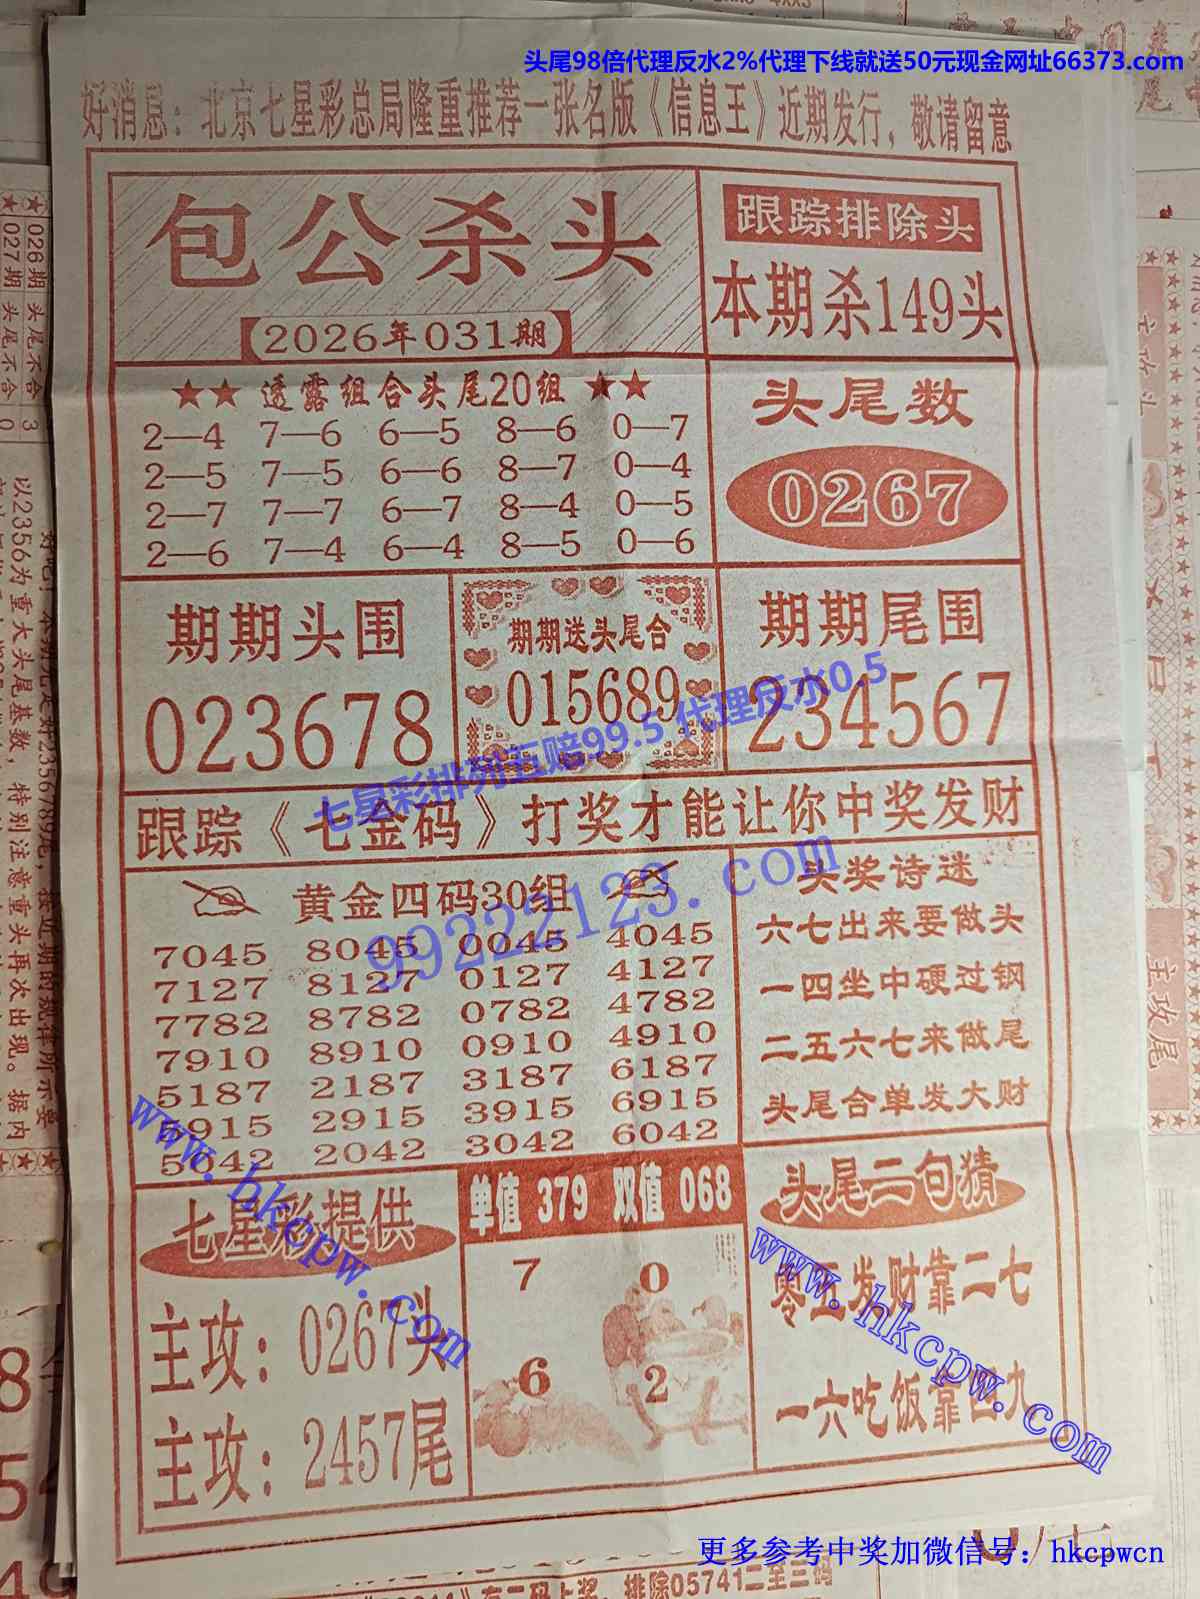 头尾98倍代理反水2%代理下线就送50元现金网址66373.com
好消息：北京七星彩总局隆重推荐一张名版《信息王》近期发行，敬请留意
包公杀头
【2026年031期】
跟踪排除头
本期杀149头
★★ 透露组合头尾20组 ★★
2—4 7—6 6—5 8—6 0—7
2—5 7—5 6—6 8—7 0—4
2—7 7—7 6—7 8—4 0—5
2—6 7—4 6—4 8—5 0—6
头尾数
0267
期期头围
023678
期期送头尾合
015689
期期尾围
234567
七星彩排列五赔99.5 代理反水0.5
跟踪《七金码》打奖才能让你中奖发财
99222123.com
黄金四码30组
7045 8045 0045 4045
7127 8127 0127 4127
7782 8782 0782 4782
7910 8910 0910 4910
5187 2187 3187 6187
5915 2915 3915 6915
5042 2042 3042 6042
头奖诗迷
六七出来要做头
一四坐中硬过钢
二五六七来做尾
头尾合单发大财
七星彩提供
主攻：0267头
主攻：2457尾
单值 379 双值 068
7 0
6 2
头尾二句猜
零五发财靠二七
一六吃饭靠四九
www.hkcpw.com
www.hkcpw.com
更多参考中奖加微信号：hkcpwcn
026期 头尾不合 3
027期 头尾不合 0
以2356为重大头尾基数，特别注意重头再次出现。据内
主攻尾